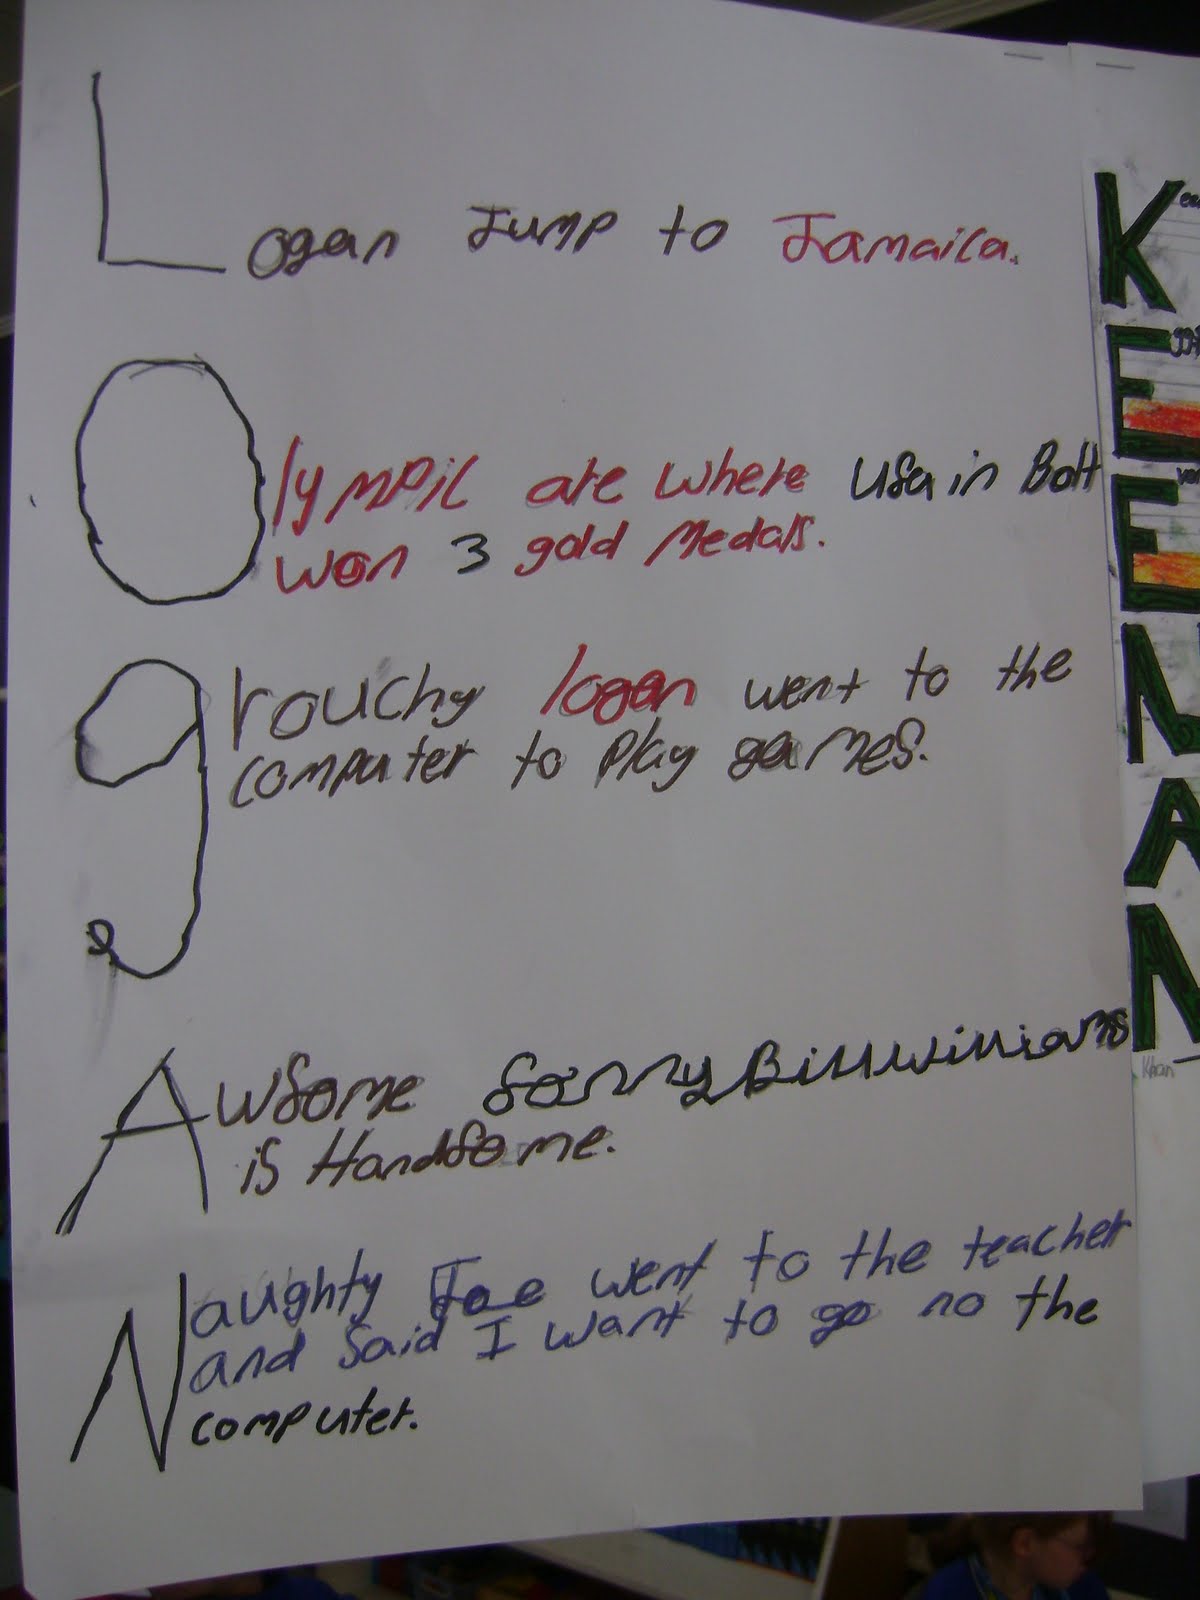 Logan Jump to Jamaica.
Olympic are where Usain Bolt
won 3 gold Medals.
grouchy logan went to the
computer to play games.
Awsome Sonny Bill Williams
is Handsome.
Naughty Joe went to the teacher
and said I want to go no the
computer.
KEENAN
Khan